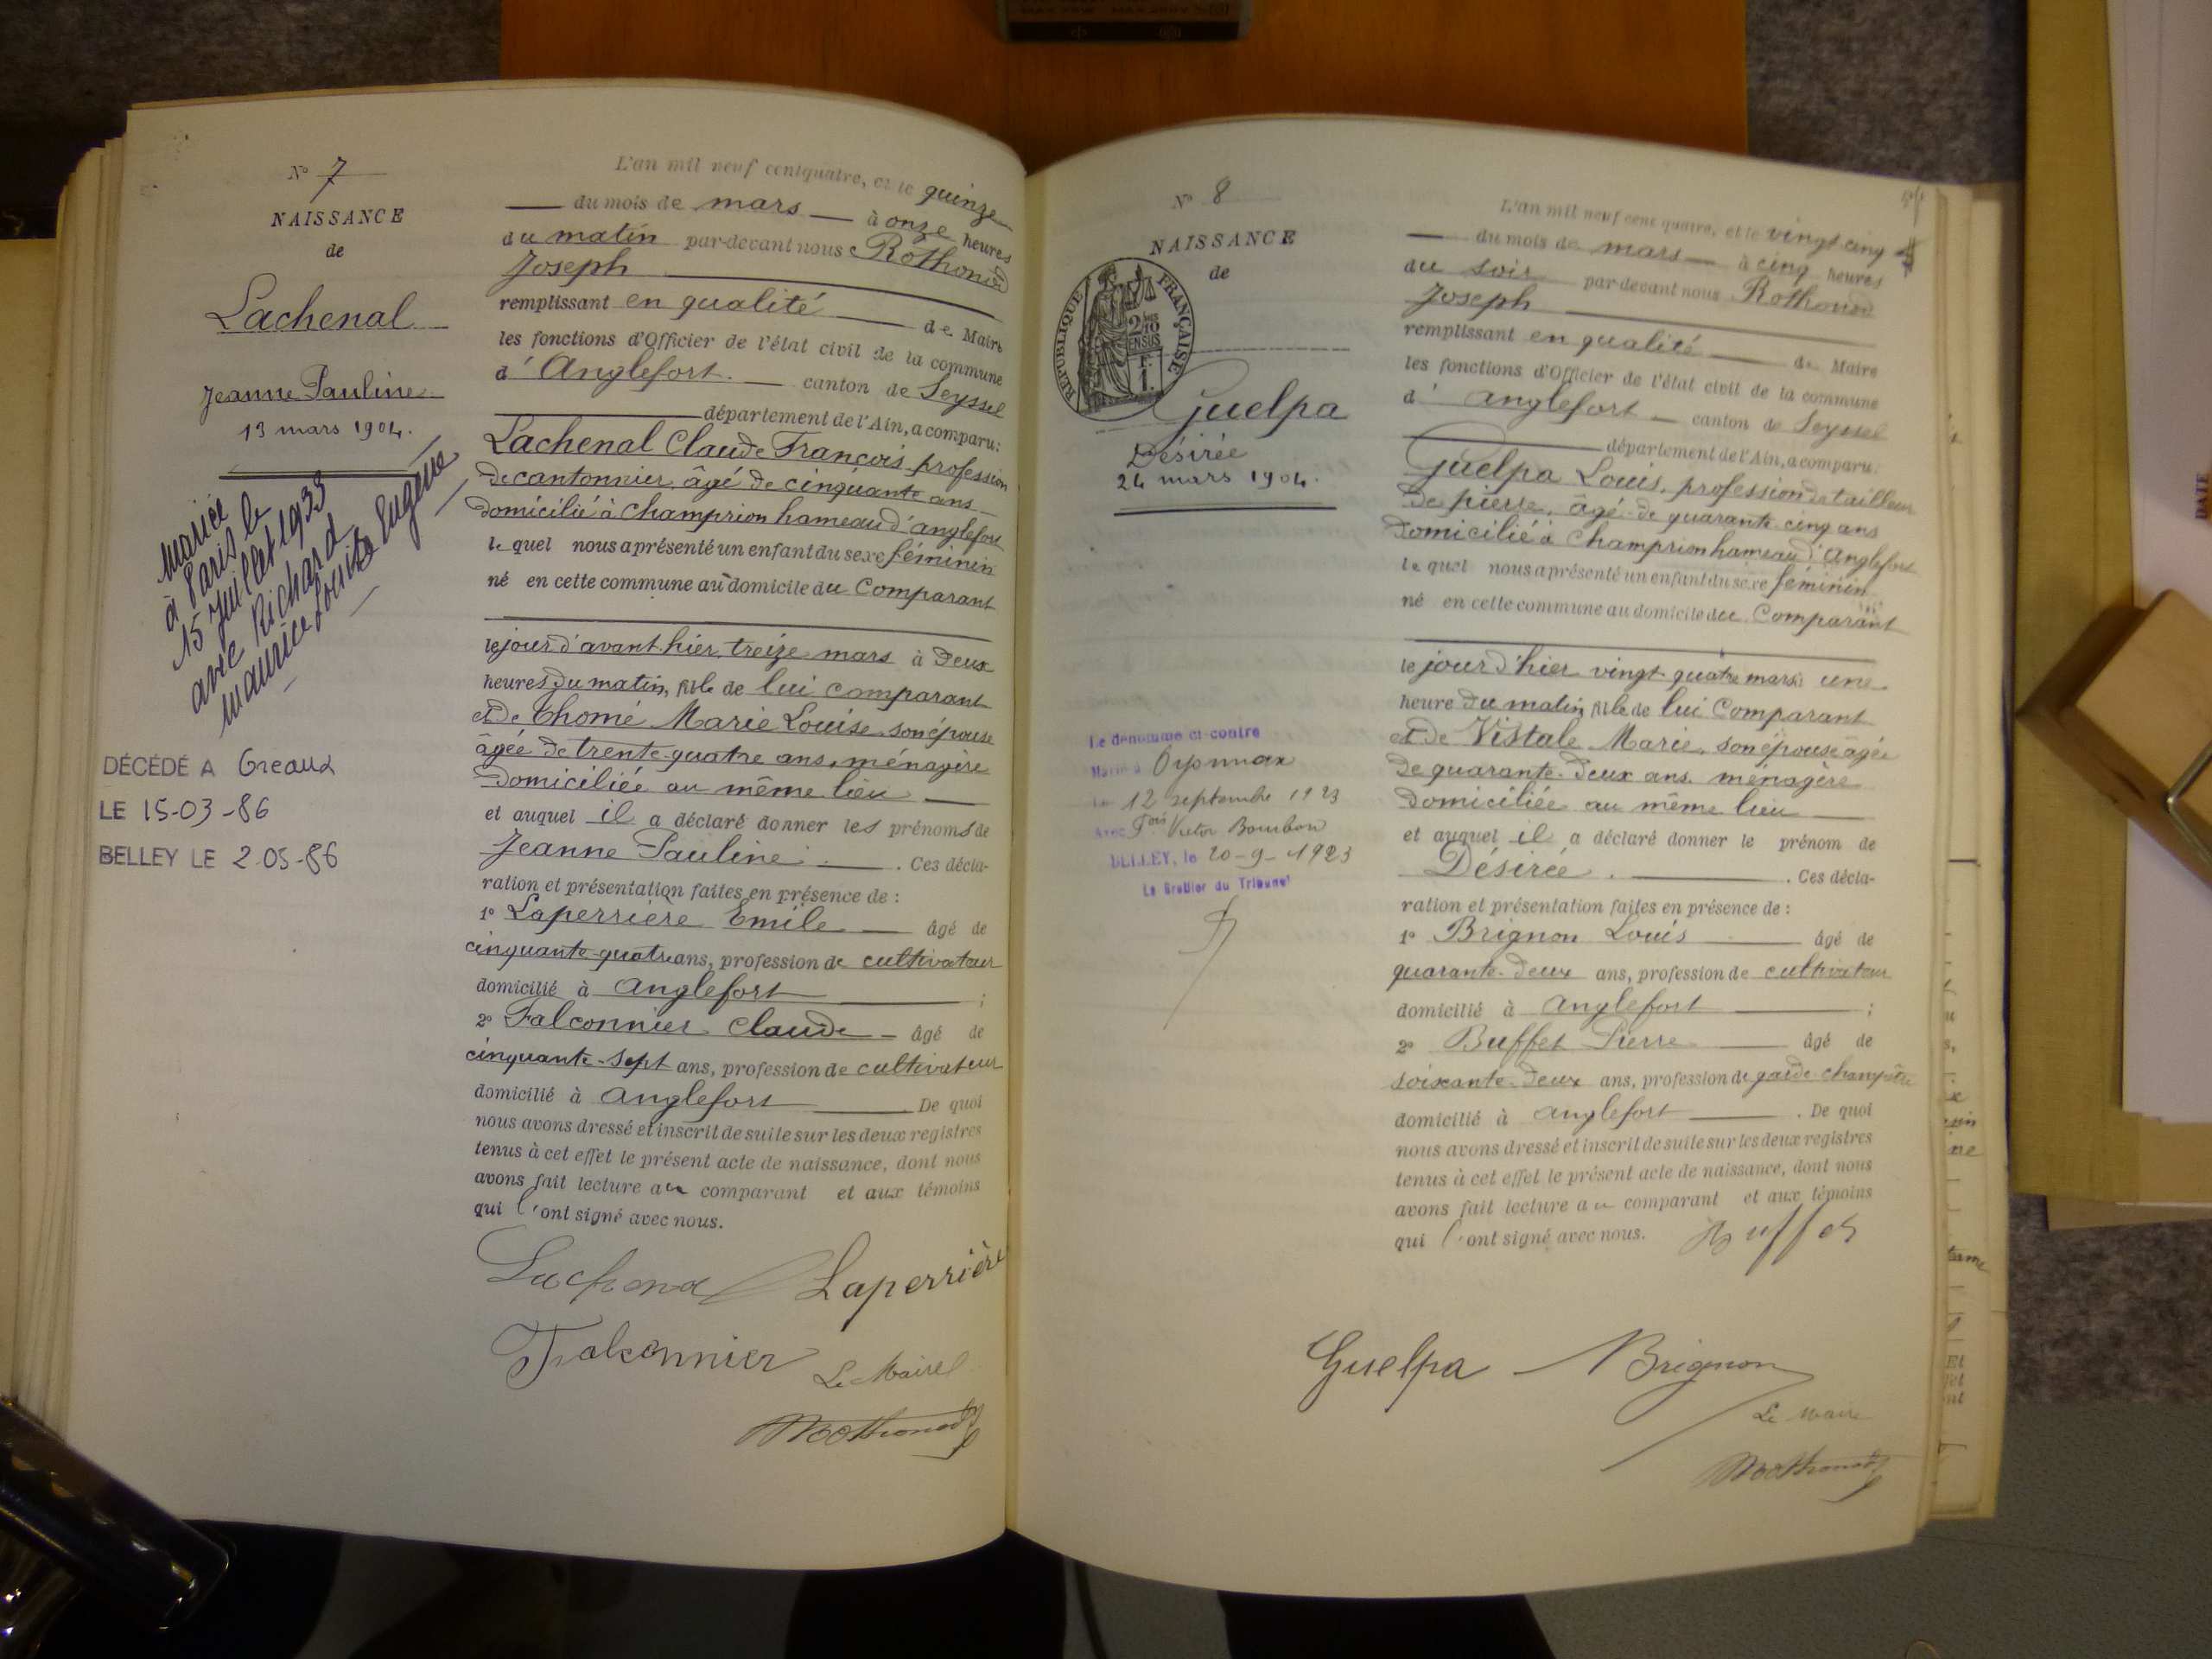 N° 7
NAISSANCE
de
Lachenal
Jeanne Pauline
13 mars 1904.
Mariée
à Paris le
15 Juillet 1933
avec Richard
Maurice Louis Eugène
DÉCÉDÉ A Greaux
LE 15-03-86
BELLEY LE 2-05-86
L'an mil neuf cent quatre, et le quinze
du mois de mars à onze heures
du matin par-devant nous Rothonod
Joseph
remplissant en qualité de Maire
les fonctions d'Officier de l'état civil de la commune
d'Anglefort. canton de Seyssel
département de l'Ain, a comparu:
Lachenal Claude François profession
de cantonnier, âgé de cinquante ans
domicilié à Champrion hameau d'anglefort
lequel nous a présenté un enfant du sexe féminin
né en cette commune au domicile du Comparant
le jour d'avant hier, treize mars à Deux
heures du matin, fille de lui comparant
et de Thomé Marie Louise son épouse
âgée de trente-quatre ans, ménagère
domiciliée au même lieu
et auquel il a déclaré donner les prénoms de
Jeanne Pauline . Ces décla-
ration et présentation faites en présence de :
1° Laperrière Emile âgé de
cinquante-quatre ans, profession de cultivateur
domicilié à Anglefort ;
2° Falconnier Claude âgé de
cinquante-sept ans, profession de cultivateur
domicilié à Anglefort De quoi
nous avons dressé et inscrit de suite sur les deux registres
tenus à cet effet le présent acte de naissance, dont nous
avons fait lecture au comparant et aux témoins
qui l'ont signé avec nous.
Lachenal Laperrière
Falconnier Le Maire
Rothonod
N° 8
NAISSANCE
de
RÉPUBLIQUE FRANÇAISE
2/10
EN SUS
F.
1.
Guelpa
Désirée
24 mars 1904.
Le dénommé ci-contre
Marié à Oyonnax
Le 12 septembre 1923
Avec Fois Victor Bourbon
BELLEY, le 20-9-1923
Le Greffier du Tribunal
L'an mil neuf cent quatre, et le vingt cinq
du mois de mars à cinq heures
du soir par-devant nous Rothonod
Joseph
remplissant en qualité de Maire
les fonctions d'Officier de l'état civil de la commune
d' anglefort canton de Seyssel
département de l'Ain, a comparu:
Guelpa Louis, profession de tailleur
de pierre, âgé de quarante-cinq ans
domicilié à Champrion hameau d'Anglefort
lequel nous a présenté un enfant du sexe féminin
né en cette commune au domicile du Comparant
le jour d'hier vingt-quatre mars à une
heure du matin, fille de lui Comparant
et de Vistale Marie, son épouse âgée
de quarante-deux ans ménagère
domiciliée au même lieu
et auquel il a déclaré donner le prénom de
Désirée . Ces décla-
ration et présentation faites en présence de :
1° Brignon Louis âgé de
quarante-deux ans, profession de cultivateur
domicilié à Anglefort ;
2° Buffet Pierre âgé de
soixante-deux ans, profession de garde-champêtre
domicilié à Anglefort . De quoi
nous avons dressé et inscrit de suite sur les deux registres
tenus à cet effet le présent acte de naissance, dont nous
avons fait lecture au comparant et aux témoins
qui l'ont signé avec nous. Buffet
Guelpa Brignon
Le Maire
Rothonod